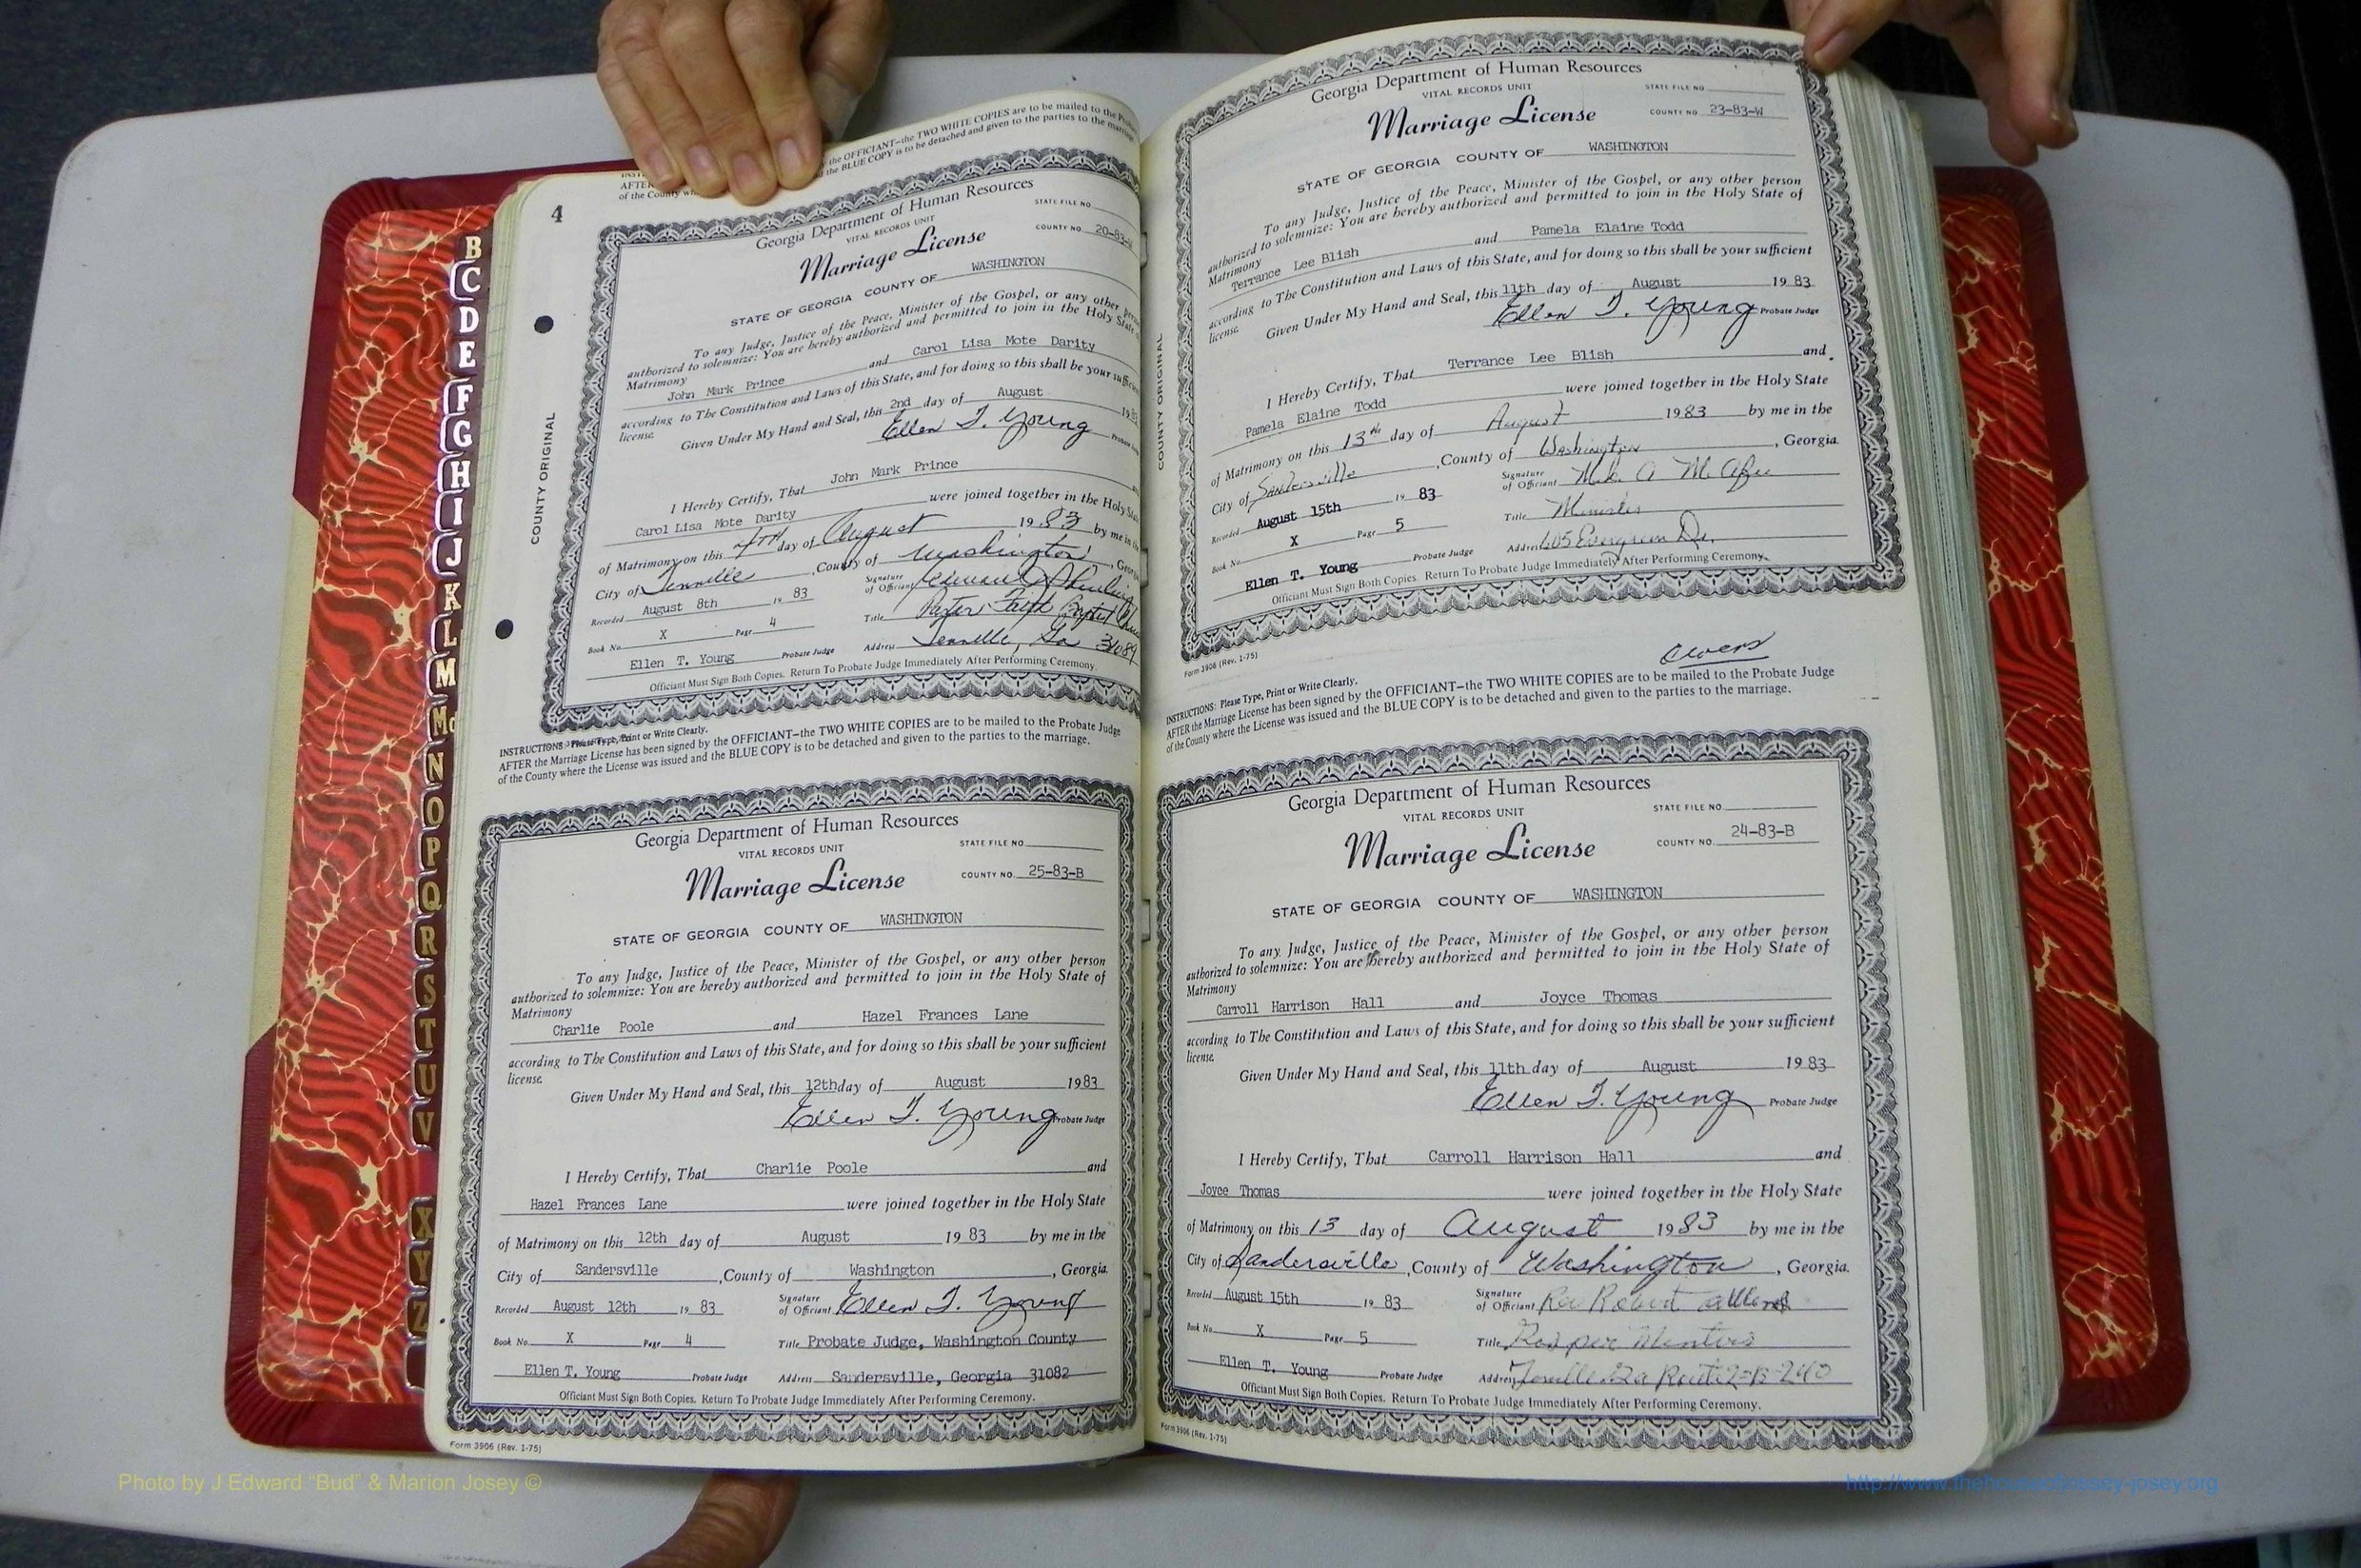 the OFFICIANT—the TWO WHITE COPIES are to be mailed to the
the BLUE COPY is to be detached and given to the parties to the
AFTER
of the County
4
COUNTY ORIGINAL
B
C
D
E
F
G
H
I
J
K
L
M
Mc
N
O
P
Q
R
S
T
U
V
X
Y
Z
Georgia Department of Human Resources
VITAL RECORDS UNIT
STATE FILE NO.
Marriage License
COUNTY NO. 20-83-
STATE OF GEORGIA COUNTY OF WASHINGTON
To any Judge, Justice of the Peace, Minister of the Gospel, or any other
authorized to solemnize: You are hereby authorized and permitted to join in the Holy State
Matrimony
John Mark Prince and Carol Lisa Mote Darity
according to The Constitution and Laws of this State, and for doing so this shall be your
license.
Given Under My Hand and Seal, this 2nd day of August 198
Ellen T. Young
I Hereby Certify, That John Mark Prince
Carol Lisa Mote Darity were joined together in the Holy
of Matrimony on this 4TH day of August 1983 by me in
City of Tennille, County of Washington,
Recorded August 8th 19 83 Signature of Officiant
Book No. X Page 4 Title Pastor Faith Baptist
Ellen T. Young Probate Judge Address Tennille, Ga 31089
Officiant Must Sign Both Copies. Return To Probate Judge Immediately After Performing Ceremony.
INSTRUCTIONS: Please Type, Print or Write Clearly.
AFTER the Marriage License has been signed by the OFFICIANT—the TWO WHITE COPIES are to be mailed to the Probate Judge
of the County where the License was issued and the BLUE COPY is to be detached and given to the parties to the marriage.
Georgia Department of Human Resources
VITAL RECORDS UNIT
STATE FILE NO.
Marriage License
COUNTY NO. 25-83-B
STATE OF GEORGIA COUNTY OF WASHINGTON
To any Judge, Justice of the Peace, Minister of the Gospel, or any other person
authorized to solemnize: You are hereby authorized and permitted to join in the Holy State of
Matrimony
Charlie Poole and Hazel Frances Lane
according to The Constitution and Laws of this State, and for doing so this shall be your sufficient
license.
Given Under My Hand and Seal, this 12th day of August 1983
Ellen T. Young Probate Judge
I Hereby Certify, That Charlie Poole and
Hazel Frances Lane were joined together in the Holy State
of Matrimony on this 12th day of August 1983 by me in the
City of Sandersville, County of Washington, Georgia.
Recorded August 12th 19 83 Signature of Officiant Ellen T. Young
Book No. X Page 4 Title Probate Judge, Washington County
Ellen T. Young Probate Judge Address Sandersville, Georgia 31082
Officiant Must Sign Both Copies. Return To Probate Judge Immediately After Performing Ceremony.
Form 3906 (Rev. 1-75)
COUNTY ORIGINAL
Georgia Department of Human Resources
VITAL RECORDS UNIT
STATE FILE NO.
Marriage License
COUNTY NO. 23-83-W
STATE OF GEORGIA COUNTY OF WASHINGTON
To any Judge, Justice of the Peace, Minister of the Gospel, or any other person
authorized to solemnize: You are hereby authorized and permitted to join in the Holy State of
Matrimony
Terrance Lee Blish and Pamela Elaine Todd
according to The Constitution and Laws of this State, and for doing so this shall be your sufficient
license.
Given Under My Hand and Seal, this 11th day of August 1983
Ellen T. Young Probate Judge
I Hereby Certify, That Terrance Lee Blish and
Pamela Elaine Todd were joined together in the Holy State
of Matrimony on this 13th day of August 1983 by me in the
City of Sandersville, County of Washington, Georgia.
Recorded August 15th 19 83 Signature of Officiant
Book No. X Page 5 Title Minister
Ellen T. Young Probate Judge Address 605 Evergreen Dr.
Officiant Must Sign Both Copies. Return To Probate Judge Immediately After Performing Ceremony.
Form 3906 (Rev. 1-75)
Owens
INSTRUCTIONS: Please Type, Print or Write Clearly.
AFTER the Marriage License has been signed by the OFFICIANT—the TWO WHITE COPIES are to be mailed to the Probate Judge
of the County where the License was issued and the BLUE COPY is to be detached and given to the parties to the marriage.
Georgia Department of Human Resources
VITAL RECORDS UNIT
STATE FILE NO.
Marriage License
COUNTY NO. 24-83-B
STATE OF GEORGIA COUNTY OF WASHINGTON
To any Judge, Justice of the Peace, Minister of the Gospel, or any other person
authorized to solemnize: You are hereby authorized and permitted to join in the Holy State of
Matrimony
Carroll Harrison Hall and Joyce Thomas
according to The Constitution and Laws of this State, and for doing so this shall be your sufficient
license.
Given Under My Hand and Seal, this 11th day of August 1983
Ellen T. Young Probate Judge
I Hereby Certify, That Carroll Harrison Hall and
Joyce Thomas were joined together in the Holy State
of Matrimony on this 13 day of August 1983 by me in the
City of Sandersville, County of Washington, Georgia.
Recorded August 15th 19 83 Signature of Officiant Rev Robert
Book No. X Page 5 Title
Ellen T. Young Probate Judge Address
Officiant Must Sign Both Copies. Return To Probate Judge Immediately After Performing Ceremony.
Form 3906 (Rev. 1-75)
Photo by J Edward "Bud" & Marion Josey ©
http://www.thehouseofjossey-josey.org